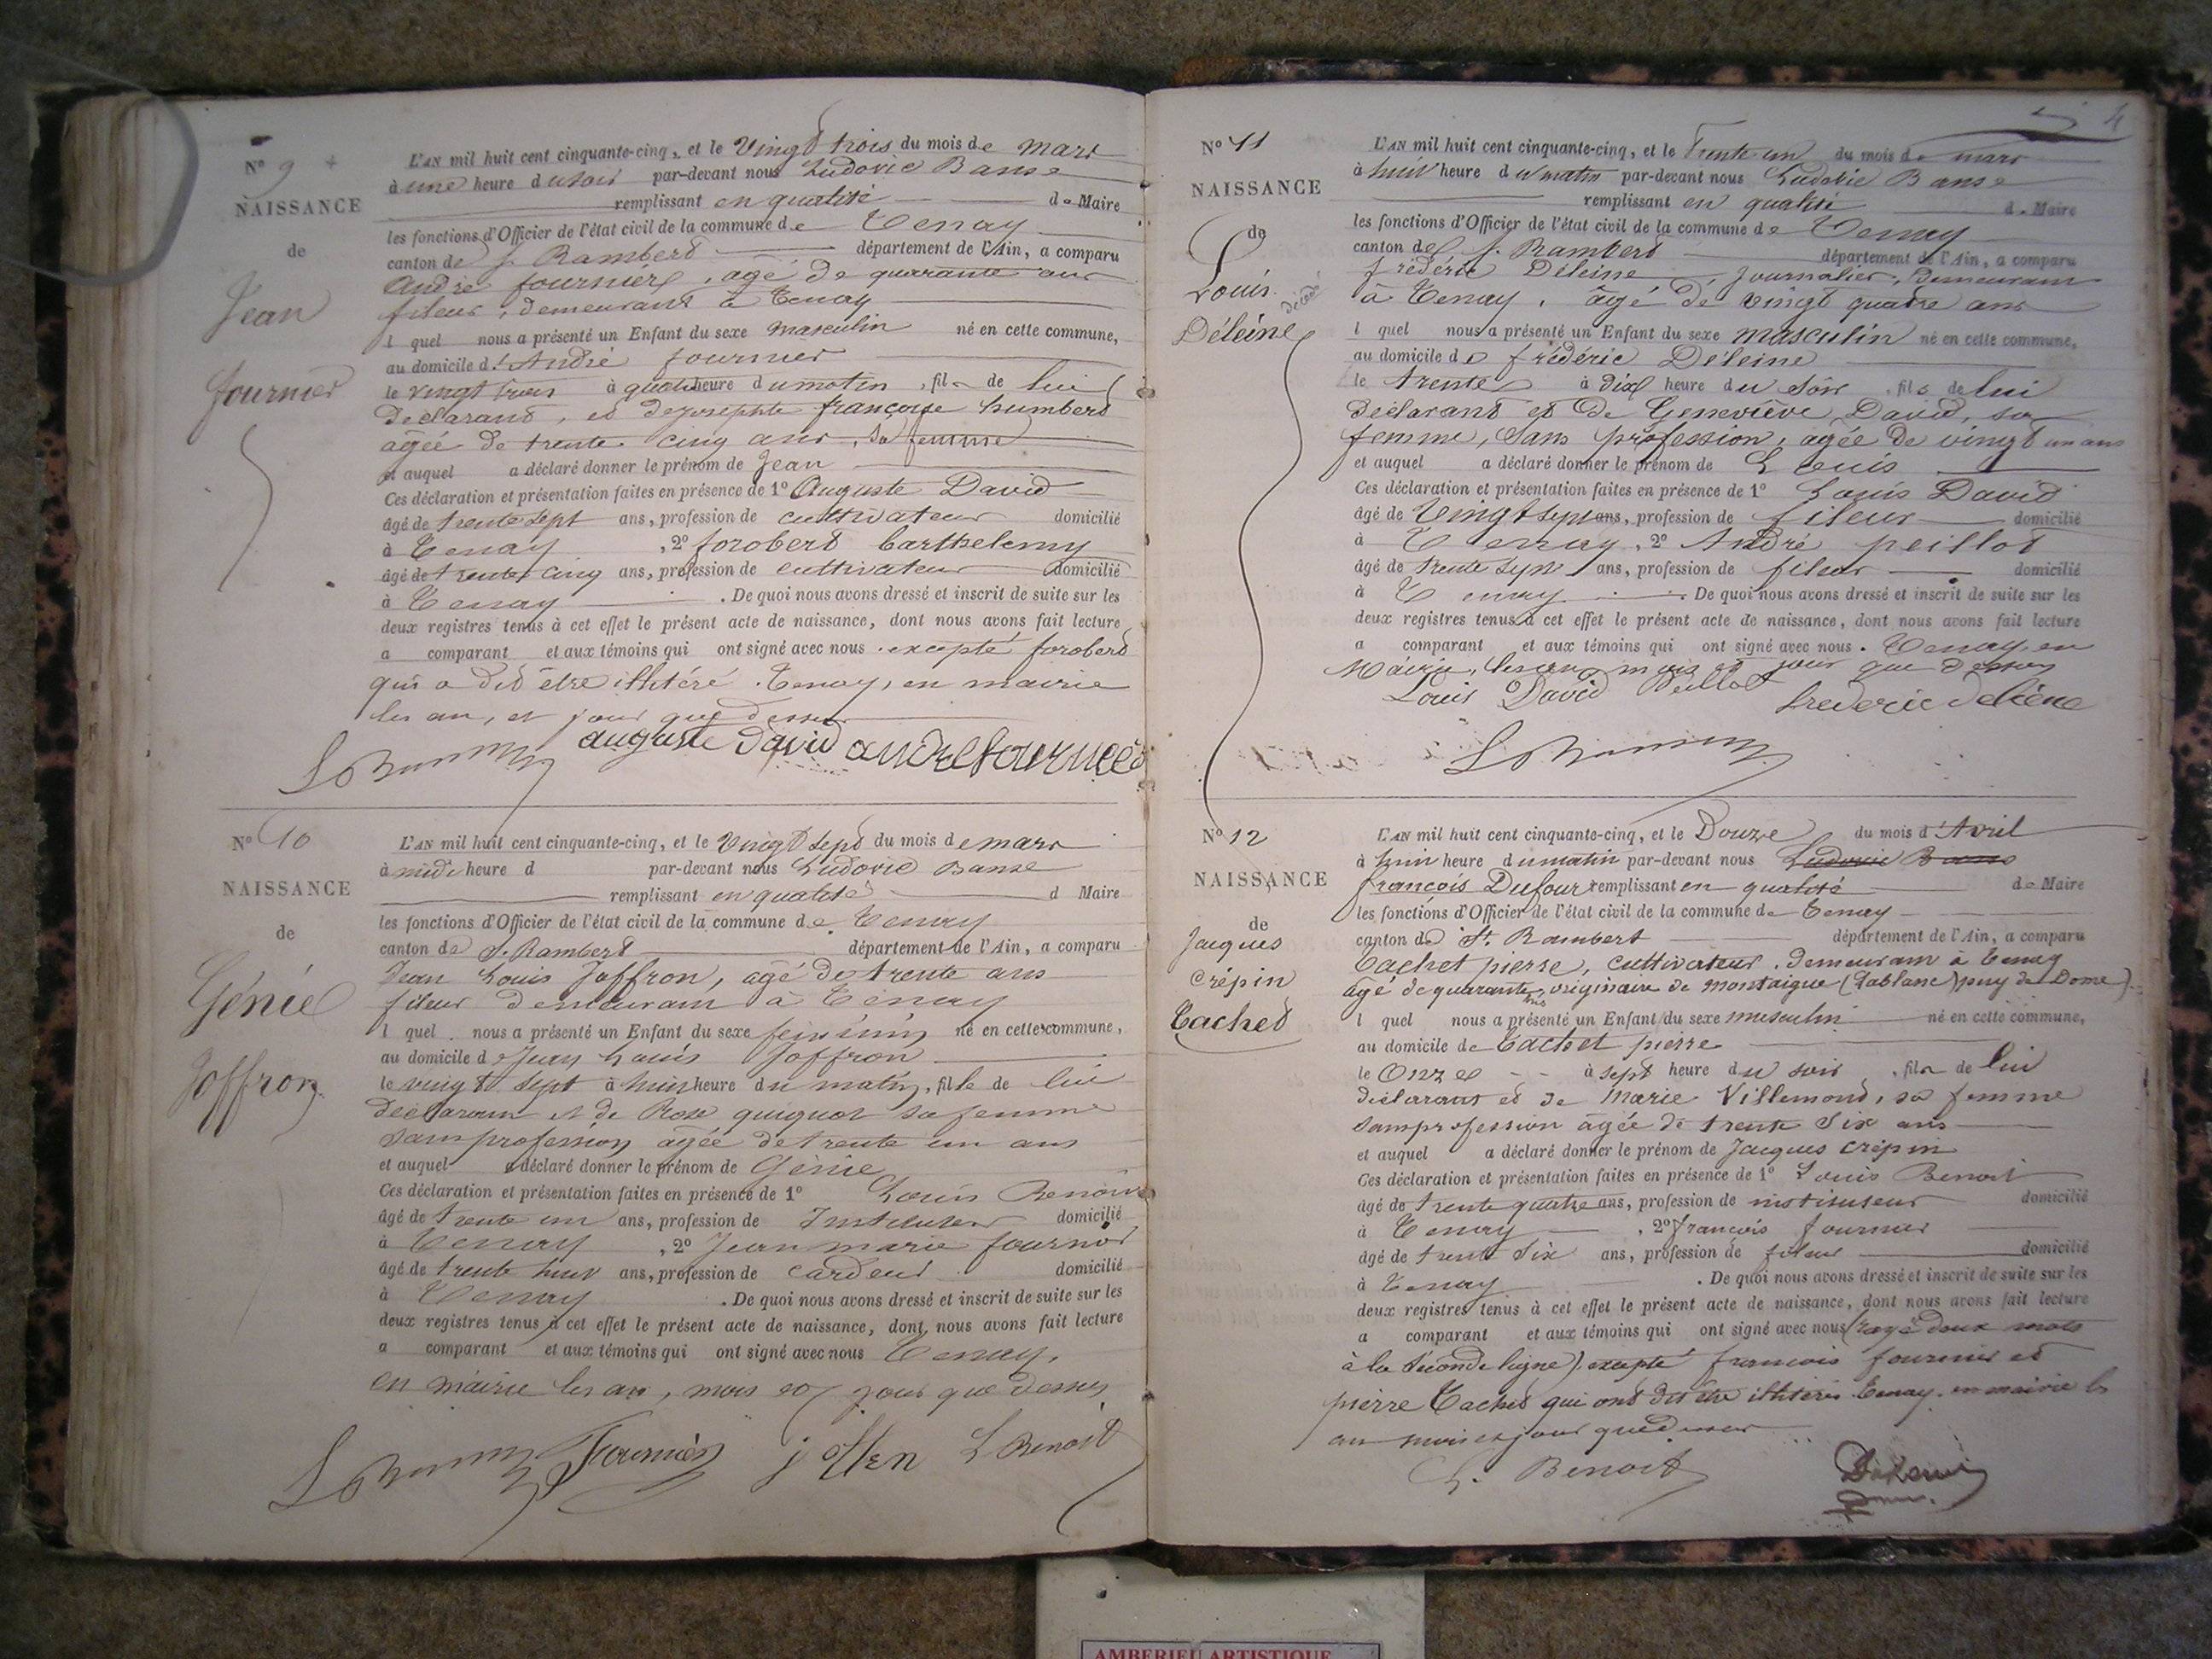 N° 9
NAISSANCE
de
Jean
fournier
L'AN mil huit cent cinquante-cinq, et le Vingt trois du mois de mars
à une heure du soir par-devant nous Ludovic Banse
remplissant en qualité de Maire
les fonctions d'Officier de l'état civil de la commune de Tenay
canton de S. Rambert département de l'Ain, a comparu
André fournier, agé de quarante ans
fileur, demeurant à Tenay
l quel nous a présenté un Enfant du sexe masculin né en cette commune,
au domicile d'André fournier
le vingt trois à heure du matin, fils de lui
déclarant, et de josephte françoise humbert
agée de trente cinq ans, sa femme
et auquel a déclaré donner le prénom de Jean
Ces déclaration et présentation faites en présence de 1° Auguste David
âgé de trente sept ans, profession de cultivateur domicilié
à Tenay, 2° forobert barthelemy
âgé de trente cinq ans, profession de cultivateur domicilié
à Tenay. De quoi nous avons dressé et inscrit de suite sur les
deux registres tenus à cet effet le présent acte de naissance, dont nous avons fait lecture
a comparant et aux témoins qui ont signé avec nous. excepté forobert
qui a dit être illitéré. Tenay, en mairie
les an, et jour que dessus
auguste david andre fournier
N° 10
NAISSANCE
de
Génie
Joffron
L'AN mil huit cent cinquante-cinq, et le Vingt sept du mois de mars
à midi heure d par-devant nous Ludovic Banse
remplissant en qualité d Maire
les fonctions d'Officier de l'état civil de la commune de Tenay
canton de S. Rambert département de l'Ain, a comparu
Jean Louis Joffron, agé de trente ans
fileur demeurant à Tenay
l quel nous a présenté un Enfant du sexe féminin né en cette commune,
au domicile de Jean Louis Joffron
le vingt sept à huit heure du matin, fille de lui
déclarant et de Rose quiquot sa femme
sans profession agée de trente un ans
et auquel a déclaré donner le prénom de Génie
Ces déclaration et présentation faites en présence de 1° Louis Benoit
âgé de trente un ans, profession de Instituteur domicilié
à Tenay, 2° Jean marie fournier
âgé de trente huit ans, profession de cardeur domicilié
à Tenay. De quoi nous avons dressé et inscrit de suite sur les
deux registres tenus à cet effet le présent acte de naissance, dont nous avons fait lecture
a comparant et aux témoins qui ont signé avec nous Tenay,
en mairie les an, mois et jour que dessus
Fournier L Benoit
4
N° 11
NAISSANCE
de
Louis
décédé
Déleine
L'AN mil huit cent cinquante-cinq, et le Trente un du mois de mars
à huit heure du matin par-devant nous Ludovic Banse
remplissant en qualité de Maire
les fonctions d'Officier de l'état civil de la commune de Tenay
canton de S. Rambert département de l'Ain, a comparu
frédéric Déleine journalier, demeurant
à Tenay, âgé de vingt quatre ans
l quel nous a présenté un Enfant du sexe masculin né en cette commune,
au domicile de frédéric Déleine
le trente à dix heure du soir, fils de lui
déclarant et de Geneviève David, sa
femme, sans profession, agée de vingt un ans
et auquel a déclaré donner le prénom de Louis
Ces déclaration et présentation faites en présence de 1° Louis David
âgé de Vingt sept ans, profession de fileur domicilié
à Tenay, 2° André peillot
âgé de trente sept ans, profession de fileur domicilié
à Tenay. De quoi nous avons dressé et inscrit de suite sur les
deux registres tenus à cet effet le présent acte de naissance, dont nous avons fait lecture
a comparant et aux témoins qui ont signé avec nous. Tenay, en
Mairie, les an, mois et jour que dessus
Louis David Peillot frederic deleine
N° 12
NAISSANCE
de
Jacques
Crépin
Tachet
L'AN mil huit cent cinquante-cinq, et le Douze du mois d'Avril
à huit heure du matin par-devant nous Ludovic Banse
françois Dufour remplissant en qualité de Maire
les fonctions d'Officier de l'état civil de la commune de Tenay
canton de St. Rambert département de l'Ain, a comparu
Tachet pierre, cultivateur, demeurant à Tenay
agé de quarante trois originaire de montaigue (Lablanc) puy de Dome)
l quel nous a présenté un Enfant du sexe masculin né en cette commune,
au domicile de Tachet pierre
le Onze à sept heure du soir, fils de lui
déclarant et de Marie Villemond, sa femme
sans profession âgée de trente six ans
et auquel a déclaré donner le prénom de Jacques crépin
Ces déclaration et présentation faites en présence de 1° Louis Benoit
âgé de trente quatre ans, profession de instituteur domicilié
à Tenay, 2° françois fournier
âgé de trente six ans, profession de fileur domicilié
à Tenay. De quoi nous avons dressé et inscrit de suite sur les
deux registres tenus à cet effet le présent acte de naissance, dont nous avons fait lecture
a comparant et aux témoins qui ont signé avec nous (rayé deux mots
à la seconde ligne) excepté francois fournier et
pierre Tachet qui ont dit être illitérés. Tenay, en mairie les
an mois et jour que dessus
L. Benoit
AMBERIEU ARTISTIQUE